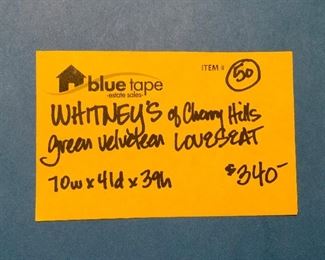 blue tape
-estate sales-
ITEM # 50
WHITNEY'S of Cherry Hills
green velveteen LOVESEAT
70w x 41d x 39h $340-